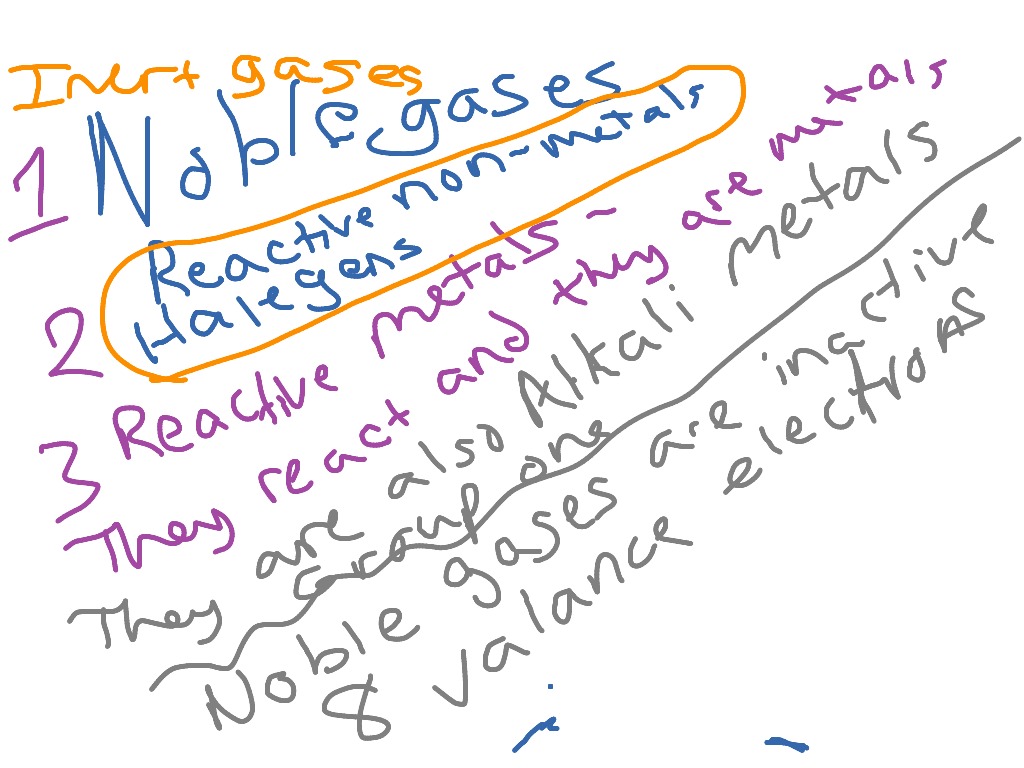 Inert gases
1 Noble gases
2 Reactive non-metals
Halegens
3 Reactive metals -
They react and they are metals
They are also Alkali metals
Group one
Noble gases are inactive
8 valance electrons